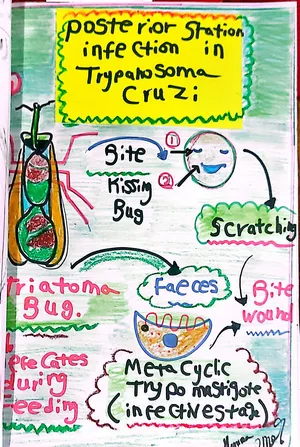 Posterior Station
infection in
Trypanosoma
Cruzi
①
Bite
②
Kissing
Bug
Scratching
Triatoma
Bug.
Faeces
Bite
wound
Defecates
During
Feeding
Metacyclic
Trypomastigote
(infective stage)